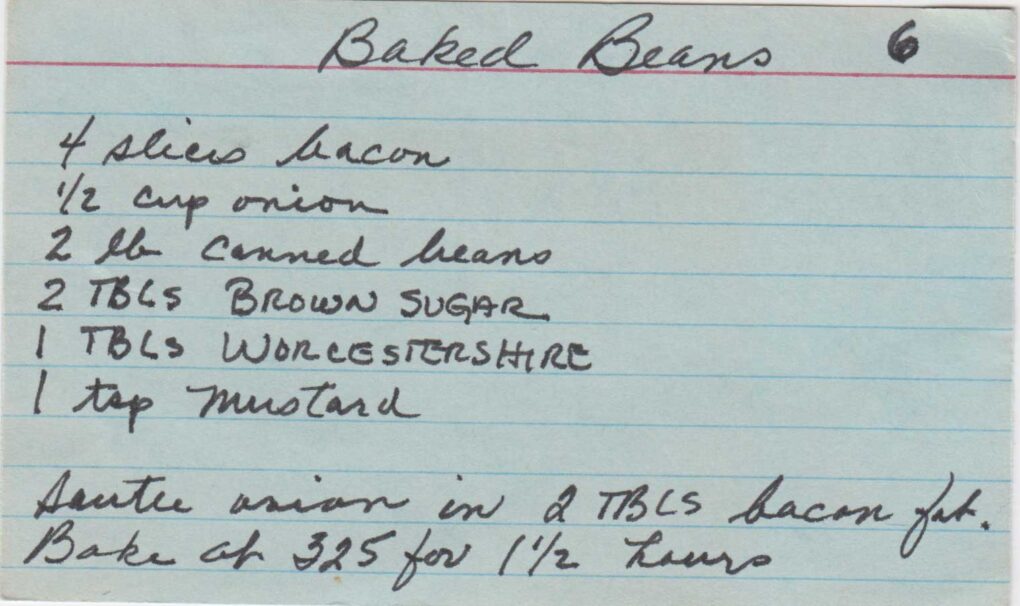 Baked Beans 6
4 slices bacon
1/2 cup onion
2 lb canned beans
2 TBLS BROWN SUGAR
1 TBLS WORCESTERSHIRE
1 tsp Mustard
Sautee onion in 2 TBLS bacon fat.
Bake at 325 for 1 1/2 hours